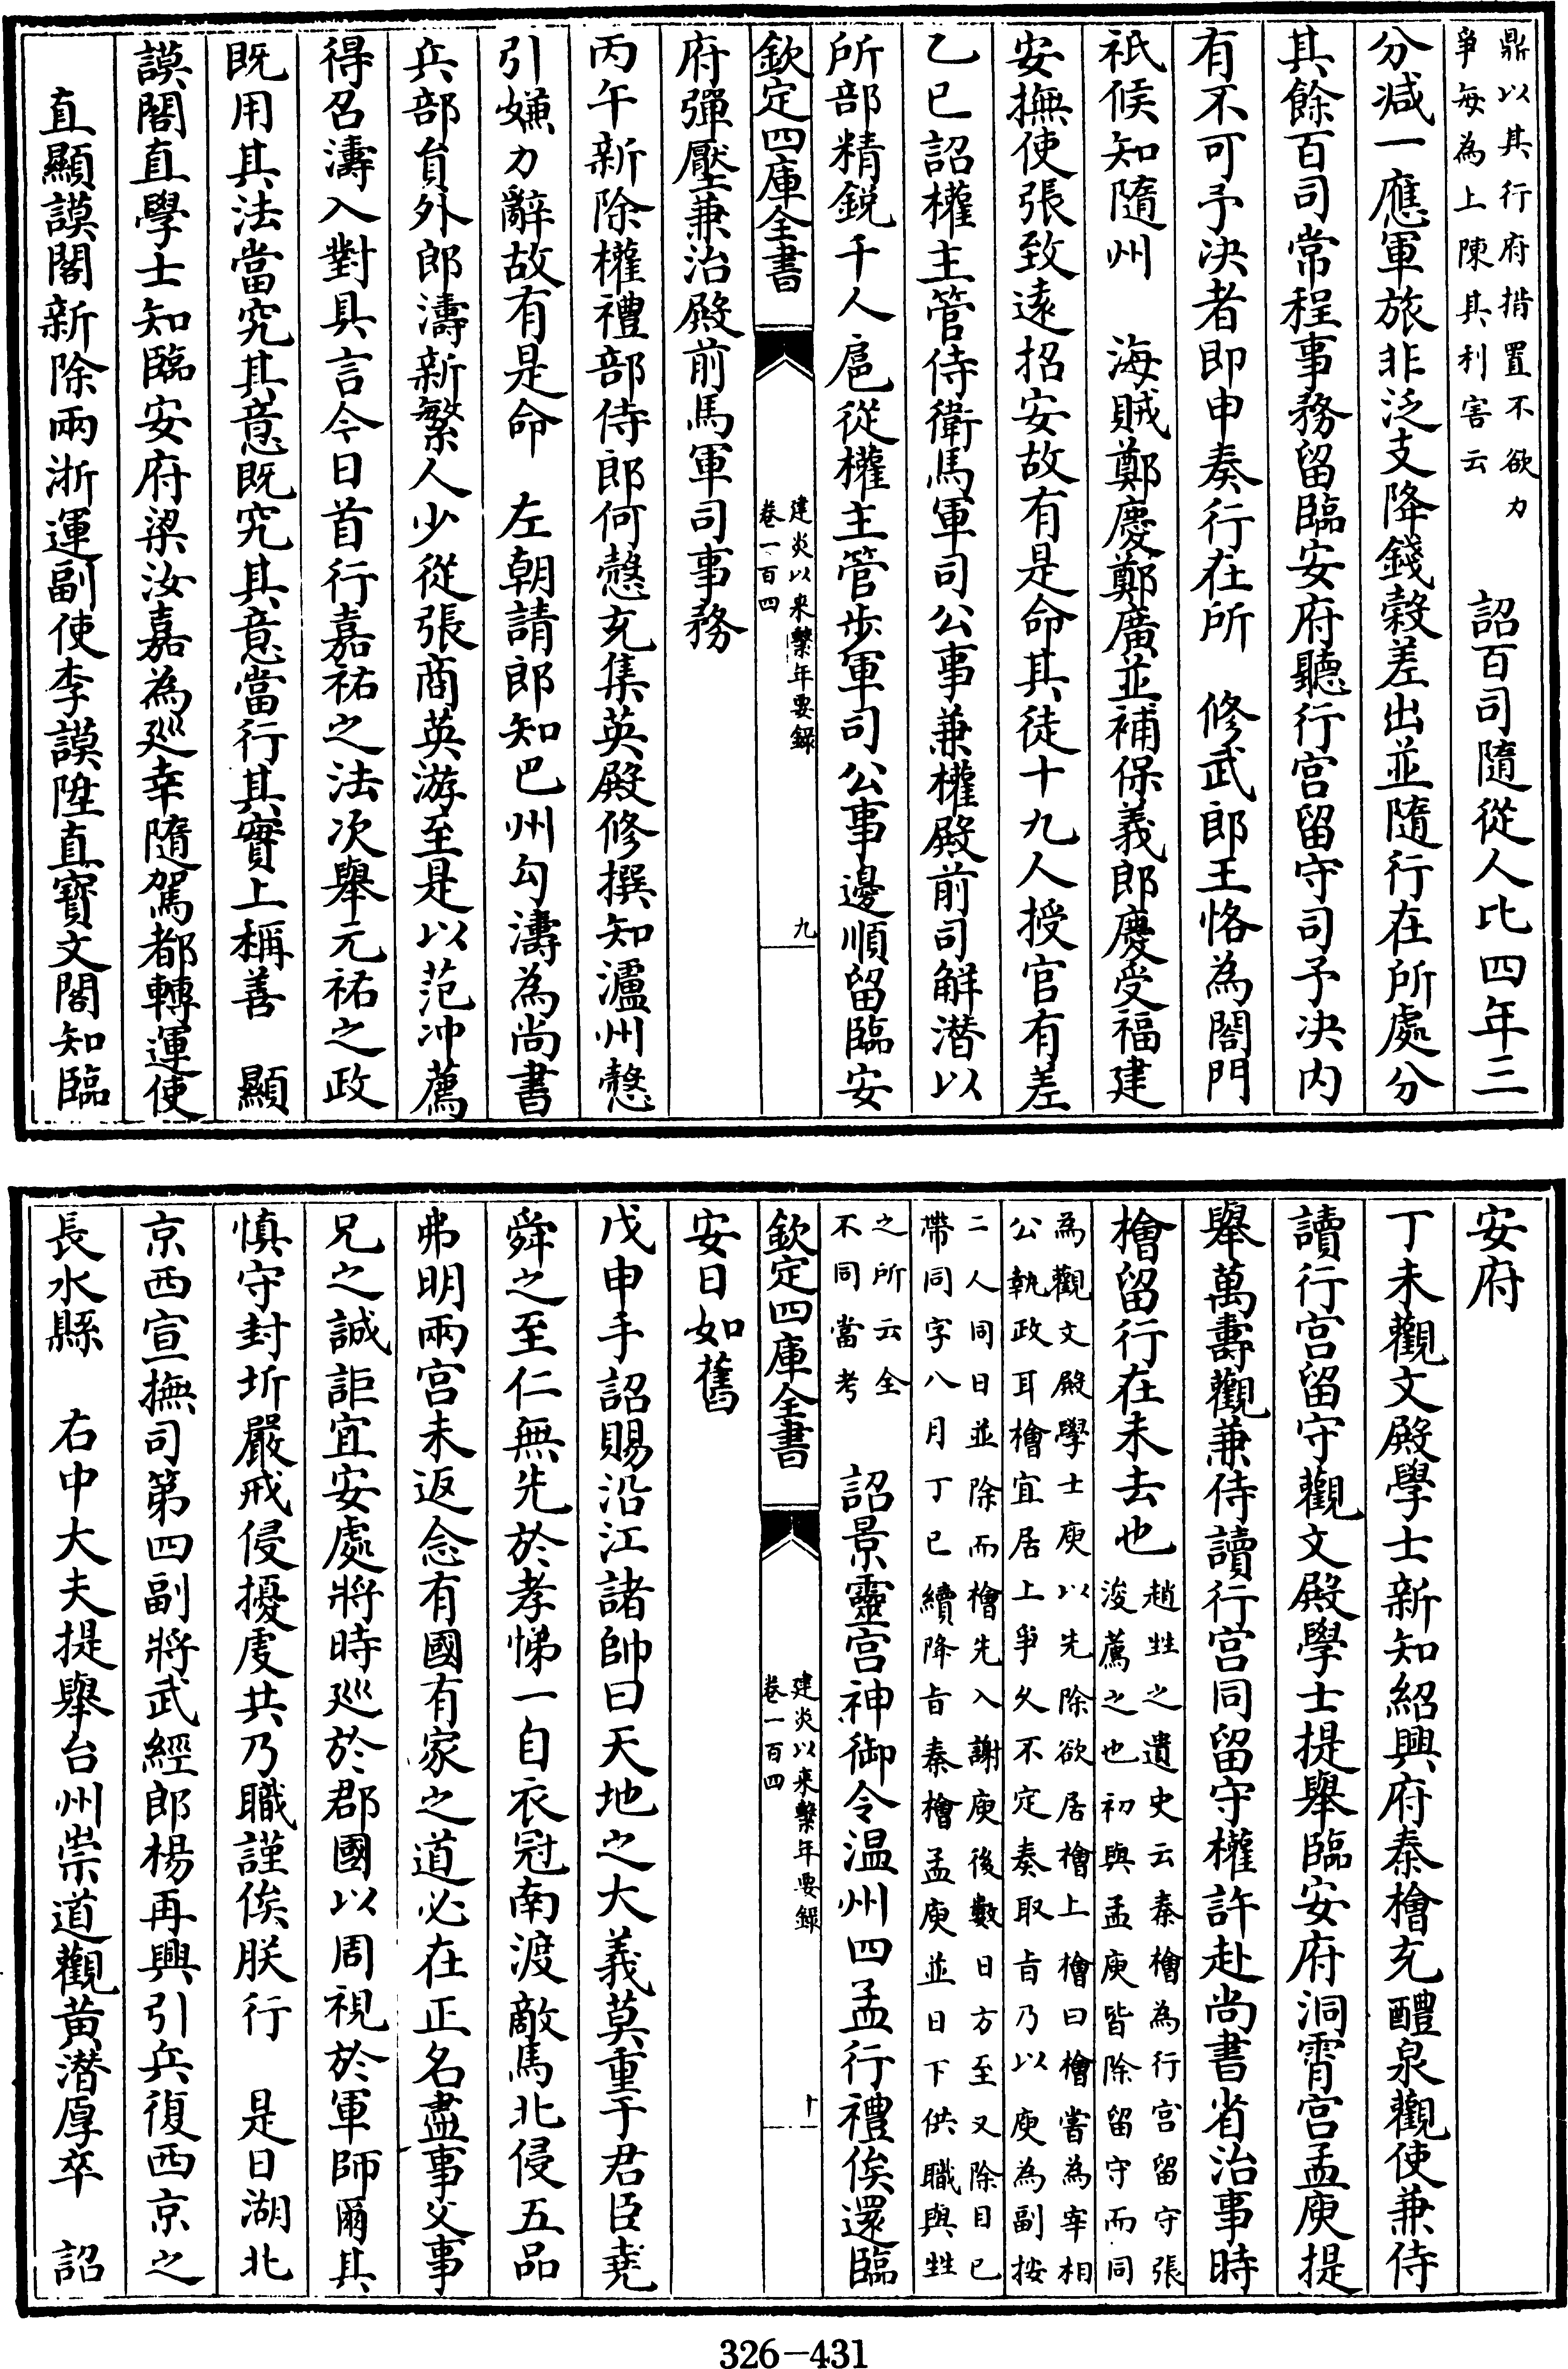 鼎以其行府措置不欲力
爭每為上陳其利害云
詔百司隨從人比四年三
分减一應軍旅非泛支降錢穀差出並隨行在所處分
其餘百司常程事務留臨安府聽行宫留守司予決内
有不可予決者即申奏行在所　修武郎王恪為閤門
祗候知隨州　海賊鄭慶鄭廣並補保義郎慶受福建
安撫使張致遠招安故有是命其徒十九人授官有差
乙巳詔權主管侍衛馬軍司公事兼權殿前司解潛以
所部精鋭千人扈從權主管步軍司公事邊順留臨安
欽定四庫全書
建炎以來繫年要録
卷一百四
九
府彈壓兼治殿前馬軍司事務
丙午新除權禮部侍郎何慤充集英殿修撰知瀘州慤
引嫌力辭故有是命　左朝請郎知巴州勾濤為尚書
兵部員外郎濤新繁人少從張商英游至是以范冲薦
得召濤入對具言今日首行嘉祐之法次舉元祐之政
既用其法當究其意既究其意當行其實上稱善　顯
謨閣直學士知臨安府梁汝嘉為廵幸隨駕都轉運使
直顯謨閣新除兩浙運副使李謨陞直寶文閣知臨
安府
丁未觀文殿學士新知紹興府秦檜充醴泉觀使兼侍
讀行宫留守觀文殿學士提舉臨安府洞霄宫孟庾提
舉萬壽觀兼侍讀行宫同留守權許赴尚書省治事時
檜留行在未去也
趙甡之遺史云秦檜為行宫留守張
浚薦之也初與孟庾皆除留守而同
為觀文殿學士庾以先除欲居檜上檜曰檜嘗為宰相
公執政耳檜宜居上爭久不定奏取旨乃以庾為副按
二人同日並除而檜先入謝庾後數日方至又除目已
帶同字八月丁巳續降旨秦檜孟庾並日下供職與甡
之所云全
不同當考
詔景靈宫神御令温州四孟行禮俟還臨
欽定四庫全書
建炎以來繫年要録
卷一百四
十
安日如舊
戊申手詔賜沿江諸帥曰天地之大義莫重于君臣堯
舜之至仁無先於孝悌一自衣冠南渡敵馬北侵五品
弗明兩宫未返念有國有家之道必在正名盡事父事
兄之誠詎宜安處將時廵於郡國以周視於軍師爾其
慎守封圻嚴戒侵擾虔共乃職謹俟朕行　是日湖北
京西宣撫司第四副將武經郎楊再興引兵復西京之
長水縣　右中大夫提舉台州崇道觀黄潛厚卒　詔
326-431